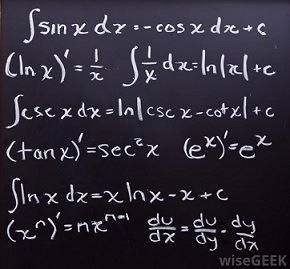 ∫sin x dx = -cos x dx + c
(ln x)' = 1/x ∫ 1/x dx = ln|x| + c
∫csc x dx = ln|csc x - cot x| + c
(tan x)' = sec²x (eˣ)' = eˣ
∫ln x dx = x ln x - x + c
(xⁿ)' = nxⁿ⁻¹ du/dx = du/dy · dy/dx
wiseGEEK